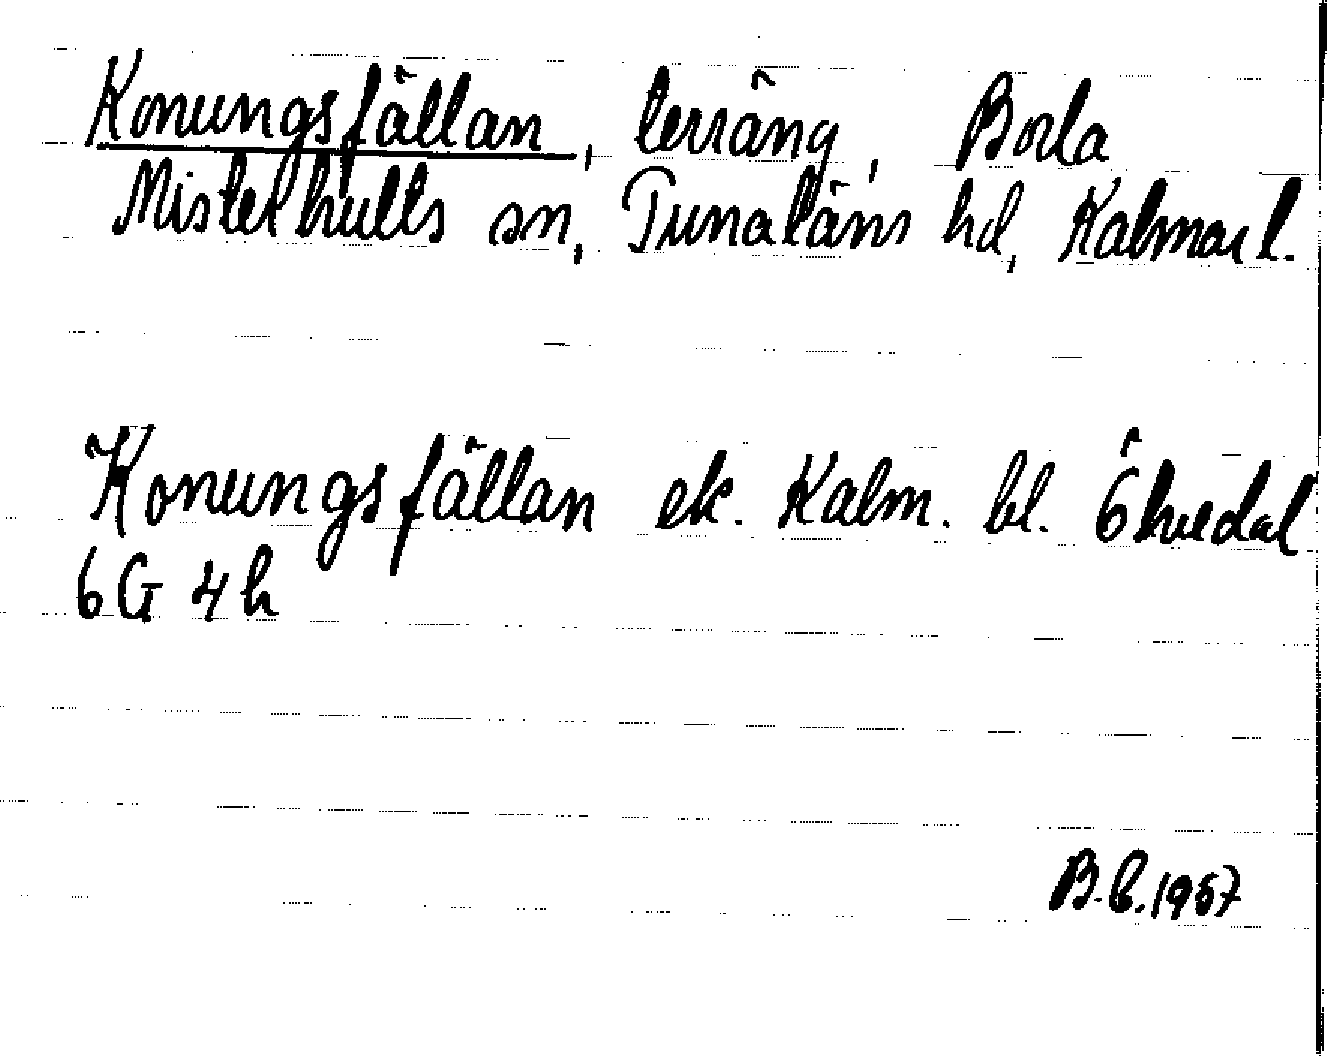 Konungsfällan, terräng, Borla
Misterhults sn, Tunaläns hd, Kalmar l.
Konungsfällan ek. Kalm. bl. Ökvedal
6G 4h
B.b. 1957